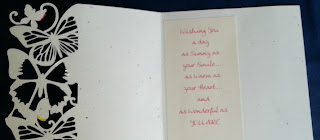 Wishing You
a day
as Sunny as
your Smile...
as Warm as
your Heart...
and
as Wonderful as
YOU ARE